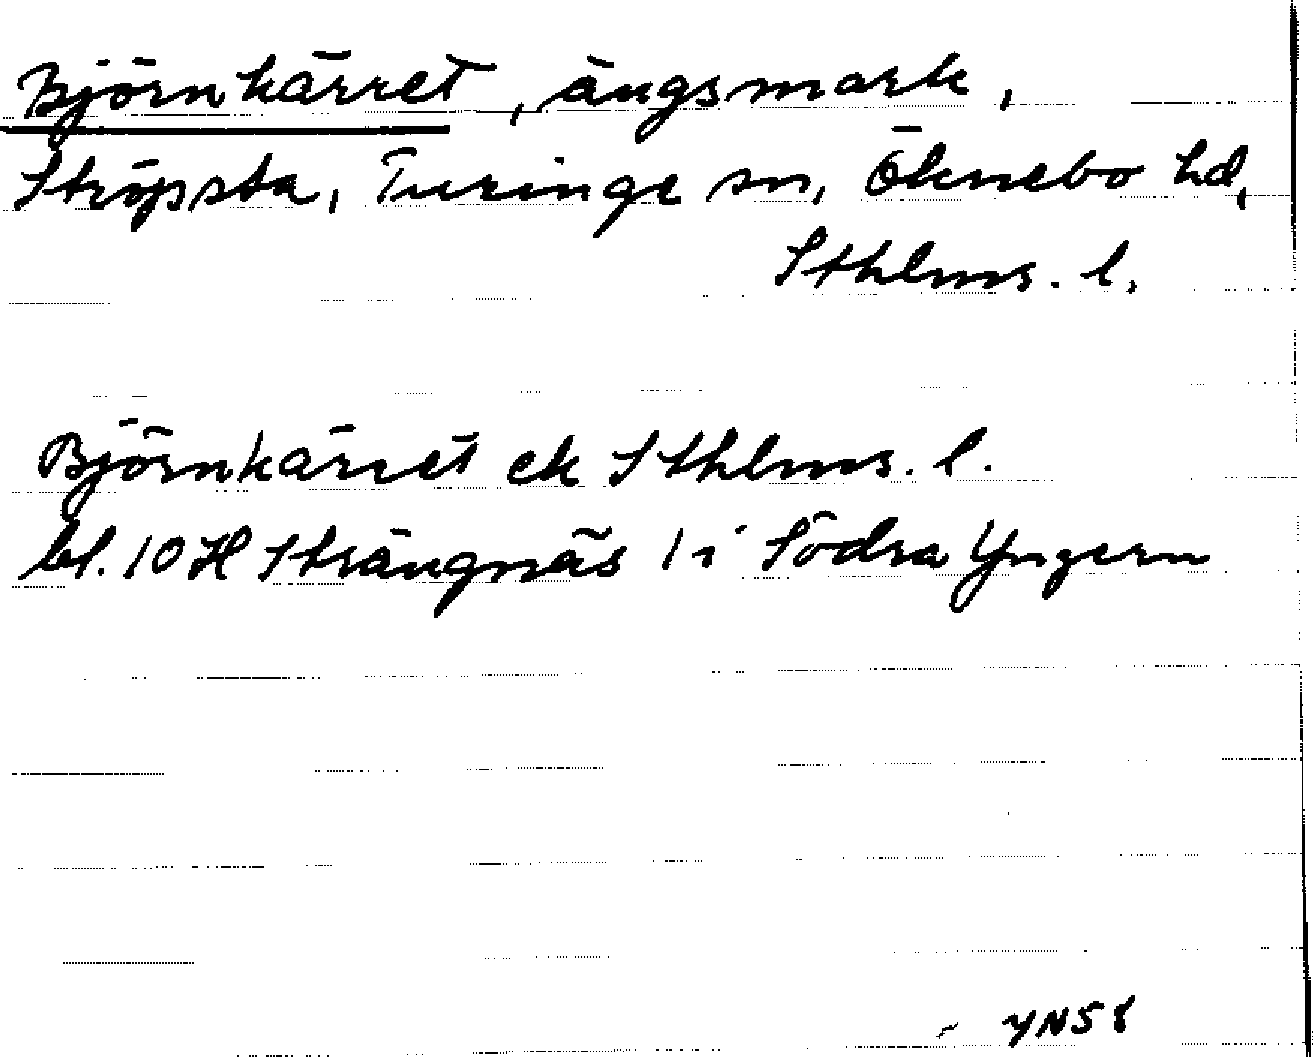 Björnkärret, ängsmark,
Ströpsta, Turinge sn, Öknebo hd,
Sthlms. l.
Björnkärret ek Sthlms. l.
bl. 10 H Strängnäs 1 i Södra Yngern
YNS8